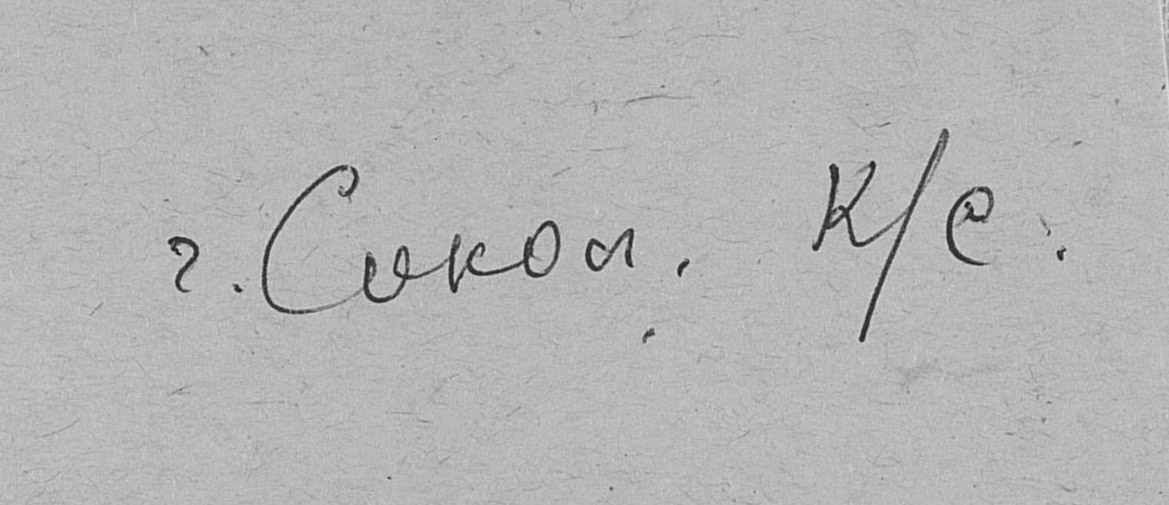 г. Сокол. К/С.